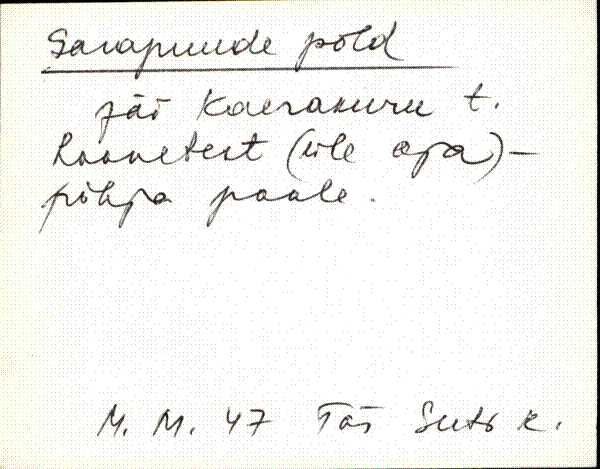 Sarapuude põld
jäi Kaeramuru t.
hoonetest (üle oja) -
põhja poole.
M. M. 47 Tõs Suts k.